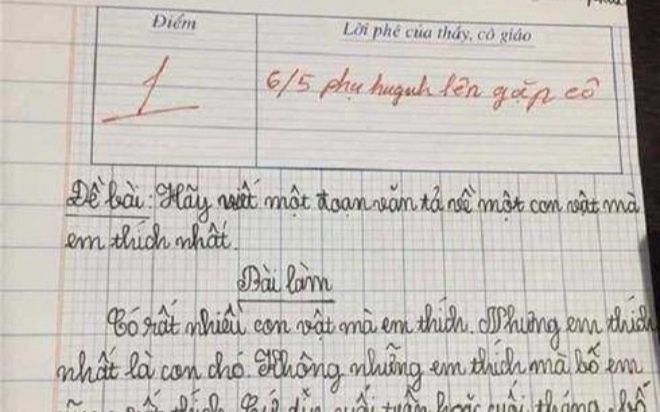 Điểm
Lời phê của thầy, cô giáo
1
6/5 phụ huynh lên gặp cô
Đề bài: Hãy viết một đoạn văn tả về một con vật mà
em thích nhất.
Bài làm
Có rất nhiều con vật mà em thích. Nhưng em thích
nhất là con chó. Không những em thích mà bố em